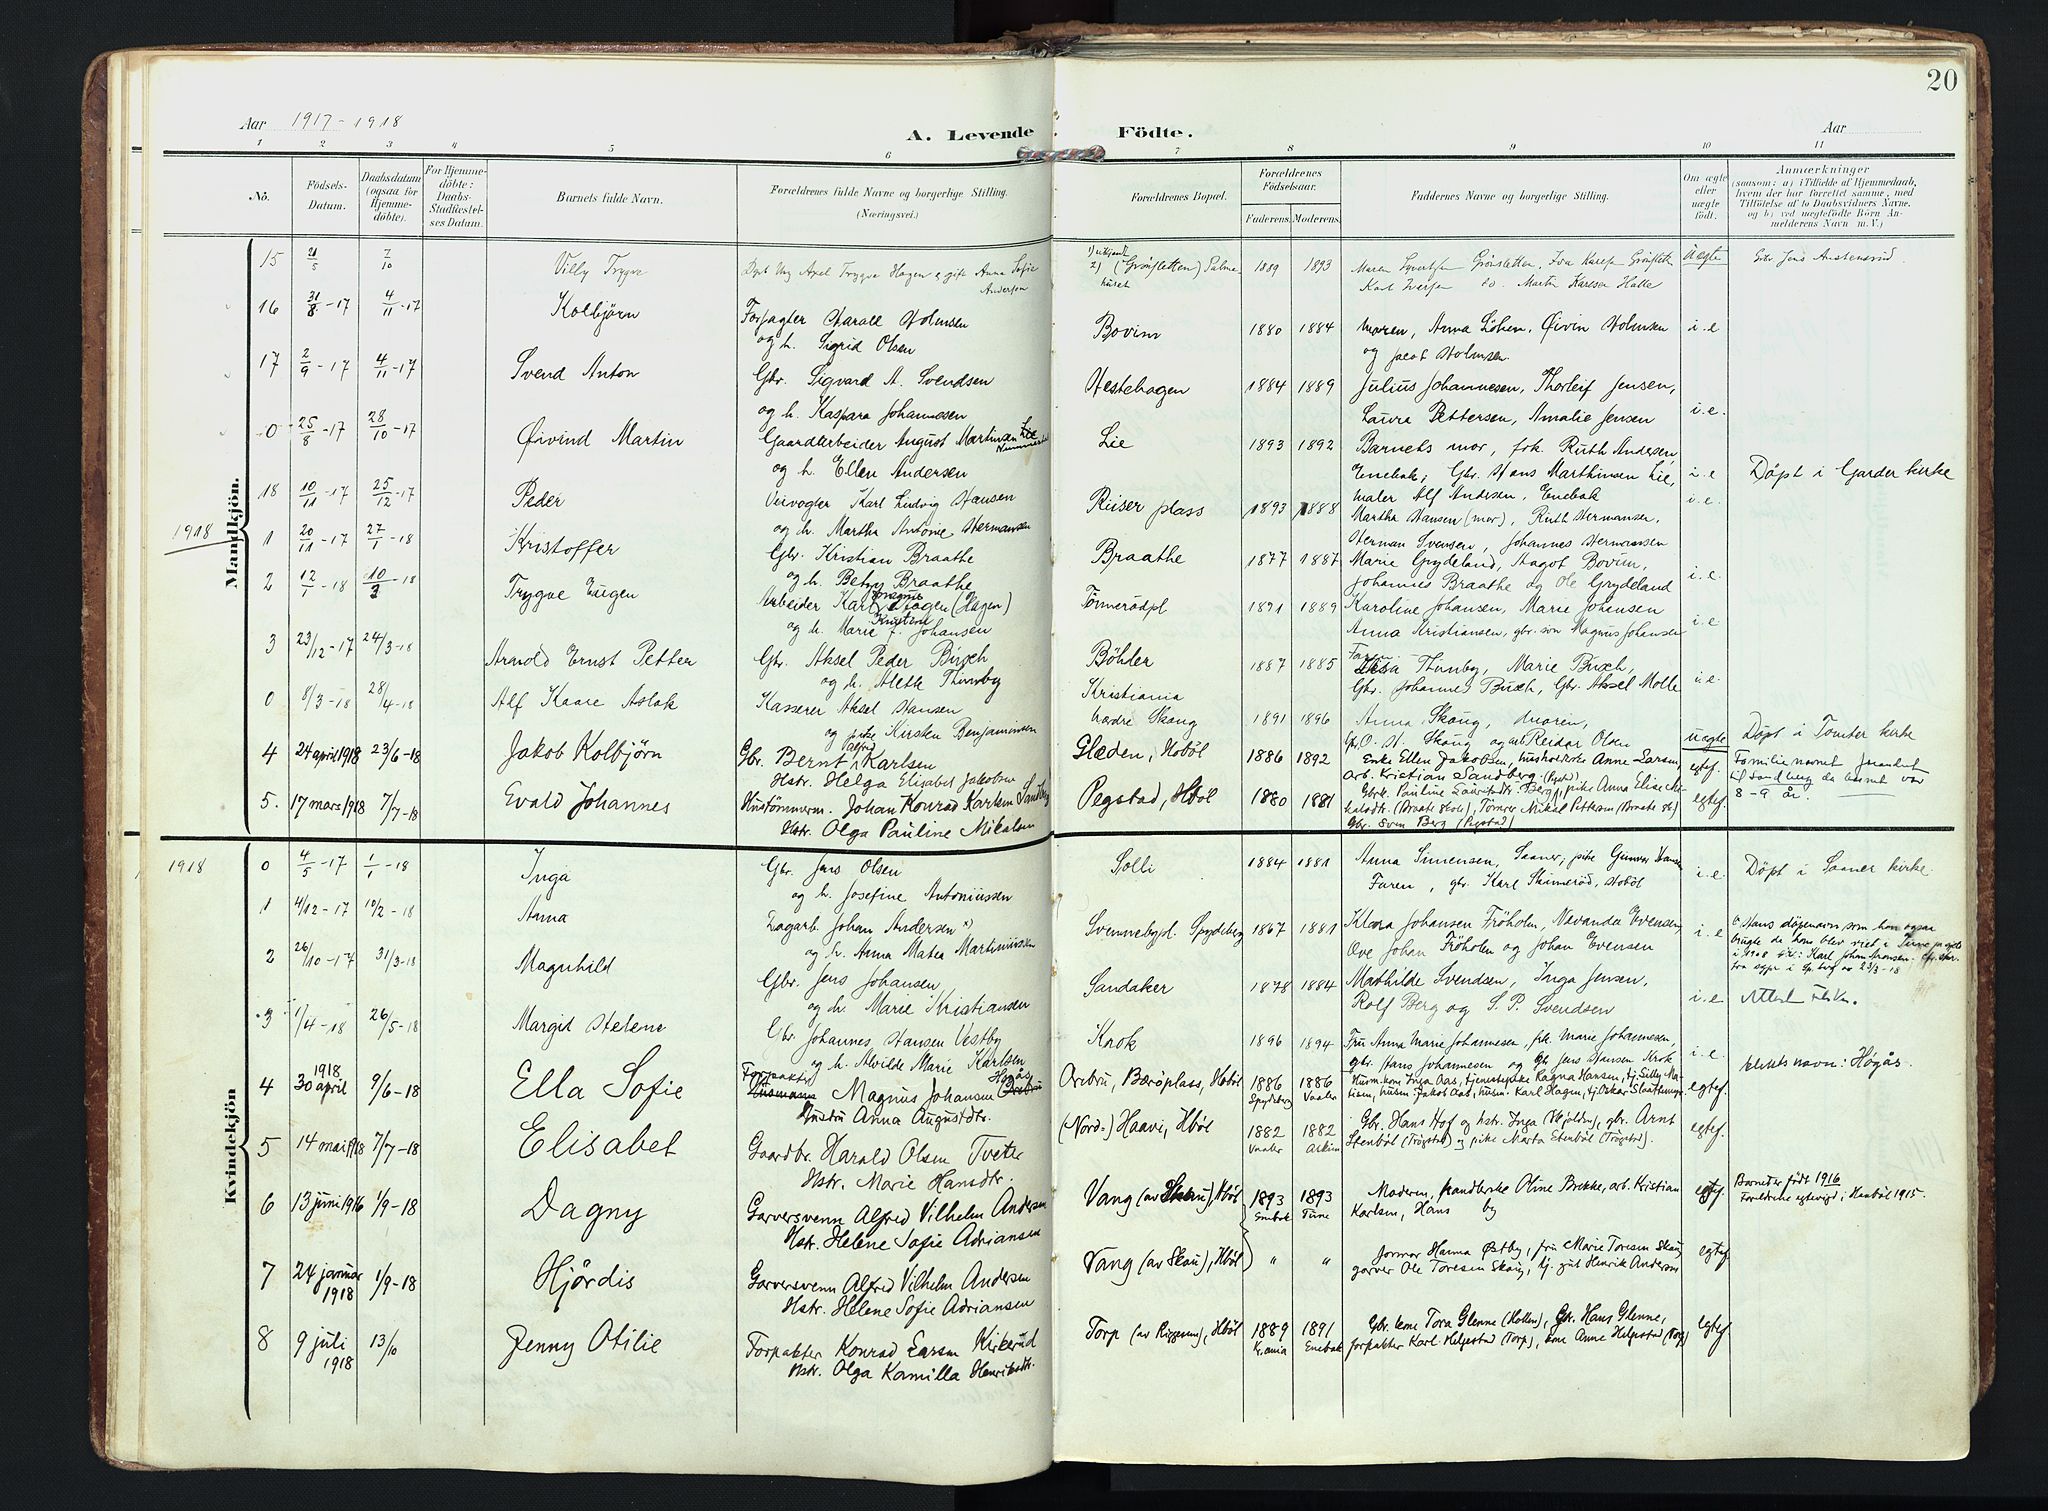 20
Aar 1917-1918
A. Levende Födte.
Aar
1 2 3 4 5 6 7 8 9 10 11
No.
Födsels-Datum.
Daabsdatum (ogsaa for Hjemme-döbte).
For Hjemme-döbte: Daabs-Stadfæstel-ses Datum.
Barnets fulde Navn.
Forældrenes fulde Navne og borgerlige Stilling. (Næringsvei.)
Forældrenes Bopæl.
Forældrenes Födselsaar.
Faderens. Moderens.
Faddernes Navne og borgerlige Stilling.
Om ægte eller uægte födt.
Anmærkninger
(saasom: a) i Tilfælde af Hjemmedaab, hvem der har forrettet samme, med Tilföielse af to Daabsvidners Navne, og b) ved uægtefödte Börn An-melderens Navn m. V.)
Mandkjön.
15 7/10 Villy Trygve
Ung Axel Trygve Hagen g. gift Anna Sofie Andersen
(Grönsletten) 1889 1893
Karl Martin Karlsen Holte
uægte
16 31/8-17 4/11-17 Kolbjörn
Forpagter Charall Holmsen
og h. Sigrid Olsen
Bovim 1880 1884
Moren, Anna Löken, Øivin Holmsen
og Jacob Holmsen.
i. e
17 2/9-17 4/11-17 Svend Anton
Gbr. Sigvard A. Svendsen
og h. Kaspara Johannesen
Hestehagen 1884 1889
Julius Johannesen, Thorleif Jensen,
Laura Pettersen, Amalie Jensen
i. e.
0 25/8-17 28/10-17 Øivind Martin
Gaardarbeider August Martinsen Lie
og h. Ellen Andersen
Lie 1893 1892
Barnets mor, frk. Ruth Andersen,
Enebak, Gbr. Hans Marthinsen Lie,
maler Alf Andersen, Enebak
i. e
Döpt i Garder kirke
18 10/11-17 25/12-17 Peder
Veivogter Karl Ludvig Hansen
og h. Martha Antonie Hermansen
Riiser plass 1893 1888
Martha Hansen (mor), Ruth Hermansen,
Herman Svensen, Johannes Hermansen
i. e.
1918
1 20/11-17 27/1-18 Kristoffer
Gbr. Kristian Braathe
og h. Betzy Braathe
Braathe 1877 1887
Marie Grydeland, Hagot Bovim,
Johannes Braathe og Ole Grydeland
i. e.
2 12/1-18 10/3-18 Trygve Eugen
Arbeider Karl Hagen (Hagen)
og h. Marie Johansen
Tömmerödpl 1891 1889
Karoline Johansen, Marie Johansen
Anna Kristiansen, gbr. søn Magnus Johansen
i. e
3 23/12-17 24/3-18 Arnold Ernst Petter
Gbr. Aksel Peder Busch
og h. Aleth Thinby
Böhler 1887 1885
Thinby, Marie Busch,
Gbr. Johannes Busch, Gbr. Aksel Molle
i. e.
0 8/3-18 28/4-18 Alf Kaare Aslak
Kasserer Aksel Hansen
og pike Kirsten Benjaminsen
Kristiania
nordre Skoug 1891 1896
Anna Skoug, moren,
Gbr. O. H. Skoug og arb Reidar Olsen
uægte
Döpt i Tomter kirke
4 24 april 1918 23/6-18 Jakob Kolbjørn
Gbr. Bernt Alfred Karlsen
Hstr. Helga Elisabet Jakobsen
Glæden, Hobøl 1886 1892
Enke Ellen Jakobsen, husholderske Anne Larsen,
arb. Kristian Sandberg
egtef.
Familienavnet forandret
til Sandberg da barnet var
8-9 år.
5. 17 mars 1918 7/7-18 Evald Johannes
Hustömmerm. Johan Konrad Karlsen Sandberg
Hstr. Olga Pauline Mikalsen
Pegstad, Hobøl 1880 1881
Gbrk. Pauline Lauritsdtr. Berg, pike Anna Elise
(Braate skole), Tømrer Mikal Pettersen (Braate sk)
Gbr. Sven Berg (Pegstad)
egtef.
Kvindekjön
1918
0 4/5-17 1/1-18 Inga
Gbr. Jens Olsen
og h. Josefine Antoniussen
Solli 1884 1881
Anna Simensen, Saaner, pike Gunvor Hansen
Furen, gbr. Karl Skimeröd, Hobøl
i. e.
Döpt i Saaner kirke.
1 4/12-17 10/2-18 Anna
Dagarb. Johan Andersen x)
og h. Anna Matea Martiniussen
Svennebypl. Spydeberg 1867 1881
Klara Johansen Fröholm, Nevanda Evensen,
Ove Johan Fröholm og Johan Evensen
i. e
Hans døpenavn som han ogsaa
brugte da han blev viet i
2 26/10-17 31/3-18 Magnhild
Gbr. Jens Johansen,
og h. Marie Kristiansen
Sandaker 1878 1884
Mathilde Svendsen, Inga Jensen,
Rolf Berg og S. P. Svendsen
i. e
3 1/4-18 26/5-18 Margit Helene
Gbr. Johannes Hansen Vestby
og h. Alvilde Marie Karlsen
Krok 1896 1894
Fru Anna Marie Johannesen, frk. Marie Johannesen,
gbr. Hans Johannesen og Gbr Jens Hansen Krok
i. e.
4 1918 30 april 9/6-18 Ella Sofie
Forpakter Husmann Magnus Johansen Høgås
Hustru Anna Augustdtr.
Orebru, Bærøplass, Hobøl 1886 Spydeberg 1886 Vaaler
Husm. kone Inga Aas, tjenestepike Ragna Hansen,
husm. Jakob Aas, husm. Karl Hagen, tj. Oskar
egtef.
slektsnavn: Høgås.
5 14 mai 1918 7/7-18 Elisabet
Gaardbr. Harald Olsen Tveter
Hstr. Marie Hansdtr.
(Nord-) Haavi, Hobøl 1882 Vaaler 1882 Askim
Gbr. Hans Hof og hstr. Inga (Skjolden), gbr. Arnt
Stenbøl (Trögstad) og pike Marta Stenbøl (Trögstad).
egtef.
6 13 juni 1916 1/9-18 Dagny
Garversvenn Alfred Vilhelm Andersen
Hstr. Helene Sofie Adriansen
Vang (av Skau), Hobøl 1893 Enebak 1893 Tune
Moderen, handlerske Oline Brekke, arb. Kristian
Karlsen, Hans by
egtef.
Barnet er födt 1916
Foreldrene egteviet i Hobøl 1915.
7 24 januar 1918 1/9-18 Hjørdis
Garversvenn Alfred Vilhelm Andersen
Hstr. Helene Sofie Adriansen
Vang (av Skau), Hobøl " "
Jonna Østby, fru Marie Toresen Skau,
garver Ole Toresen Skau, tj. gut Henrik Andersen
egtef.
8 9 juli 1918 13/10 Jenny Otilie
Forpakter Konrad Larsen Kirkerud
Hstr. Olga Kamilla Henriksdtr.
Torp (av Riggesum), Hobøl 1889 Kr.ania 1891 Enebak
Gbr. kone Tora Glenne (Holten), Gbr. Hans Glenne,
forpakter Karl Helgestad (Torp), kone Anne Helgestad (Torp)
egtef.